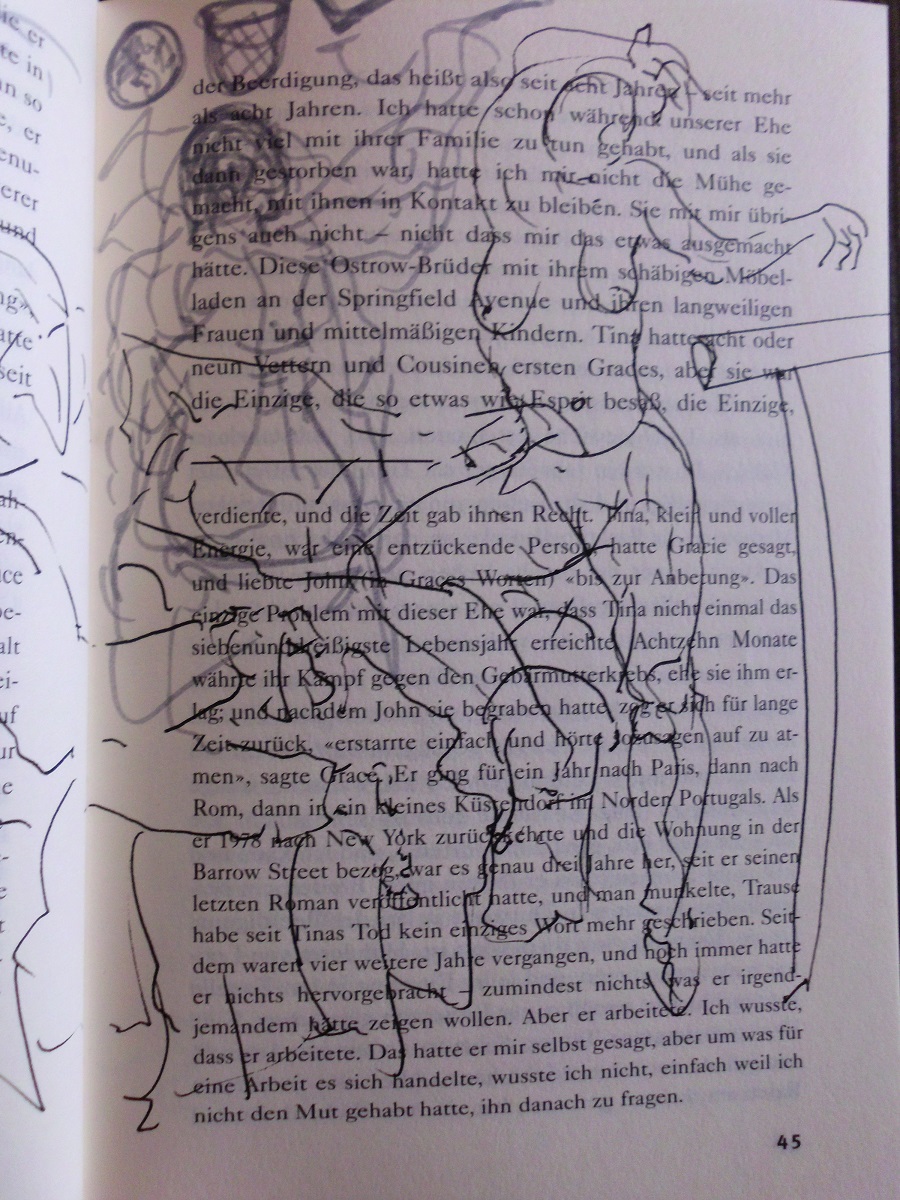 ie er
te in
n so
e, er
enu-
erer
und
ng»,
atte
seit
ah-
en-
ce
be-
alt
ei-
uf
ur
e
der Beerdigung, das heißt also seit acht Jahren – seit mehr
als acht Jahren. Ich hatte schon während unserer Ehe
nicht viel mit ihrer Familie zu tun gehabt, und als sie
dann gestorben war, hatte ich mir nicht die Mühe ge-
macht, mit ihnen in Kontakt zu bleiben. Sie mit mir übri-
gens auch nicht – nicht dass mir das etwas ausgemacht
hätte. Diese Ostrow-Brüder mit ihrem schäbigen Möbel-
laden an der Springfield Avenue und ihren langweiligen
Frauen und mittelmäßigen Kindern. Tina hatte acht oder
neun Vettern und Cousinen ersten Grades, aber sie war
die Einzige, die so etwas wie Esprit besaß, die Einzige,
verdiente, und die Zeit gab ihnen Recht. Tina, klein und voller
Energie, war eine entzückende Person, hatte Gracie gesagt,
und liebte John (in Graces Worten) «bis zur Anbetung». Das
einzige Problem mit dieser Ehe war, dass Tina nicht einmal das
siebenunddreißigste Lebensjahr erreichte. Achtzehn Monate
währte ihr Kampf gegen den Gebärmutterkrebs, ehe sie ihm er-
lag; und nachdem John sie begraben hatte, zog er sich für lange
Zeit zurück, «erstarrte einfach und hörte sozusagen auf zu at-
men», sagte Grace. Er ging für ein Jahr nach Paris, dann nach
Rom, dann in ein kleines Küstendorf im Norden Portugals. Als
er 1978 nach New York zurückkehrte und die Wohnung in der
Barrow Street bezog, war es genau drei Jahre her, seit er seinen
letzten Roman veröffentlicht hatte, und man munkelte, Trause
habe seit Tinas Tod kein einziges Wort mehr geschrieben. Seit-
dem waren vier weitere Jahre vergangen, und noch immer hatte
er nichts hervorgebracht – zumindest nichts, was er irgend-
jemandem hätte zeigen wollen. Aber er arbeitete. Ich wusste,
dass er arbeitete. Das hatte er mir selbst gesagt, aber um was für
eine Arbeit es sich handelte, wusste ich nicht, einfach weil ich
nicht den Mut gehabt hatte, ihn danach zu fragen.
45